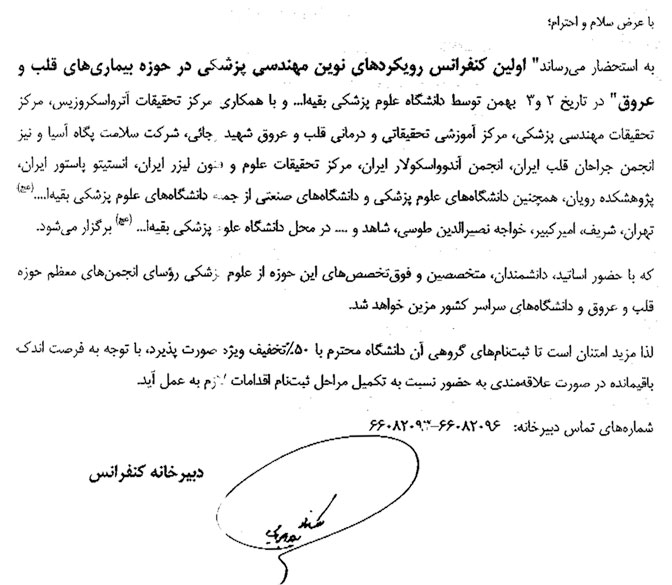 با عرض سلام و احترام؛
به استحضار می‌رساند" اولین کنفرانس رویکردهای نوین مهندسی پزشکی در حوزه بیماری‌های قلب و
عروق" در تاریخ ۲ و۳ بهمن توسط دانشگاه علوم پزشکی بقیه‌ا... و با همکاری مرکز تحقیقات آترواسکروزیس، مرکز
تحقیقات مهندسی پزشکی، مرکز آموزشی تحقیقاتی و درمانی قلب و عروق شهید رجائی، شرکت سلامت پگاه آسیا و نیز
انجمن جراحان قلب ایران، انجمن آندوواسکولار ایران، مرکز تحقیقات علوم و فنون لیزر ایران، انستیتو پاستور ایران،
پژوهشکده رویان، همچنین دانشگاه‌های علوم پزشکی و دانشگاه‌های صنعتی از جمله دانشگاه‌های علوم پزشکی بقیه‌ا....(عج)
تهران، شریف، امیرکبیر، خواجه نصیرالدین طوسی، شاهد و .... در محل دانشگاه علوم پزشکی بقیه‌ا... (عج) برگزار می‌شود.
که با حضور اساتید، دانشمندان، متخصصین و فوق‌تخصص‌های این حوزه از علوم پزشکی رؤسای انجمن‌های معظم حوزه
قلب و عروق و دانشگاه‌های سراسر کشور مزین خواهد شد.
لذا مزید امتنان است تا ثبت‌نام‌های گروهی آن دانشگاه محترم با ۵۰٪تخفیف ویژه صورت پذیرد، با توجه به فرصت اندک
باقیمانده در صورت علاقه‌مندی به حضور نسبت به تکمیل مراحل ثبت‌نام اقدامات لازم به عمل آید.
شماره‌های تماس دبیرخانه: ۶۶۰۸۲۰۹۶–۶۶۰۸۲۰۹۳
دبیرخانه کنفرانس